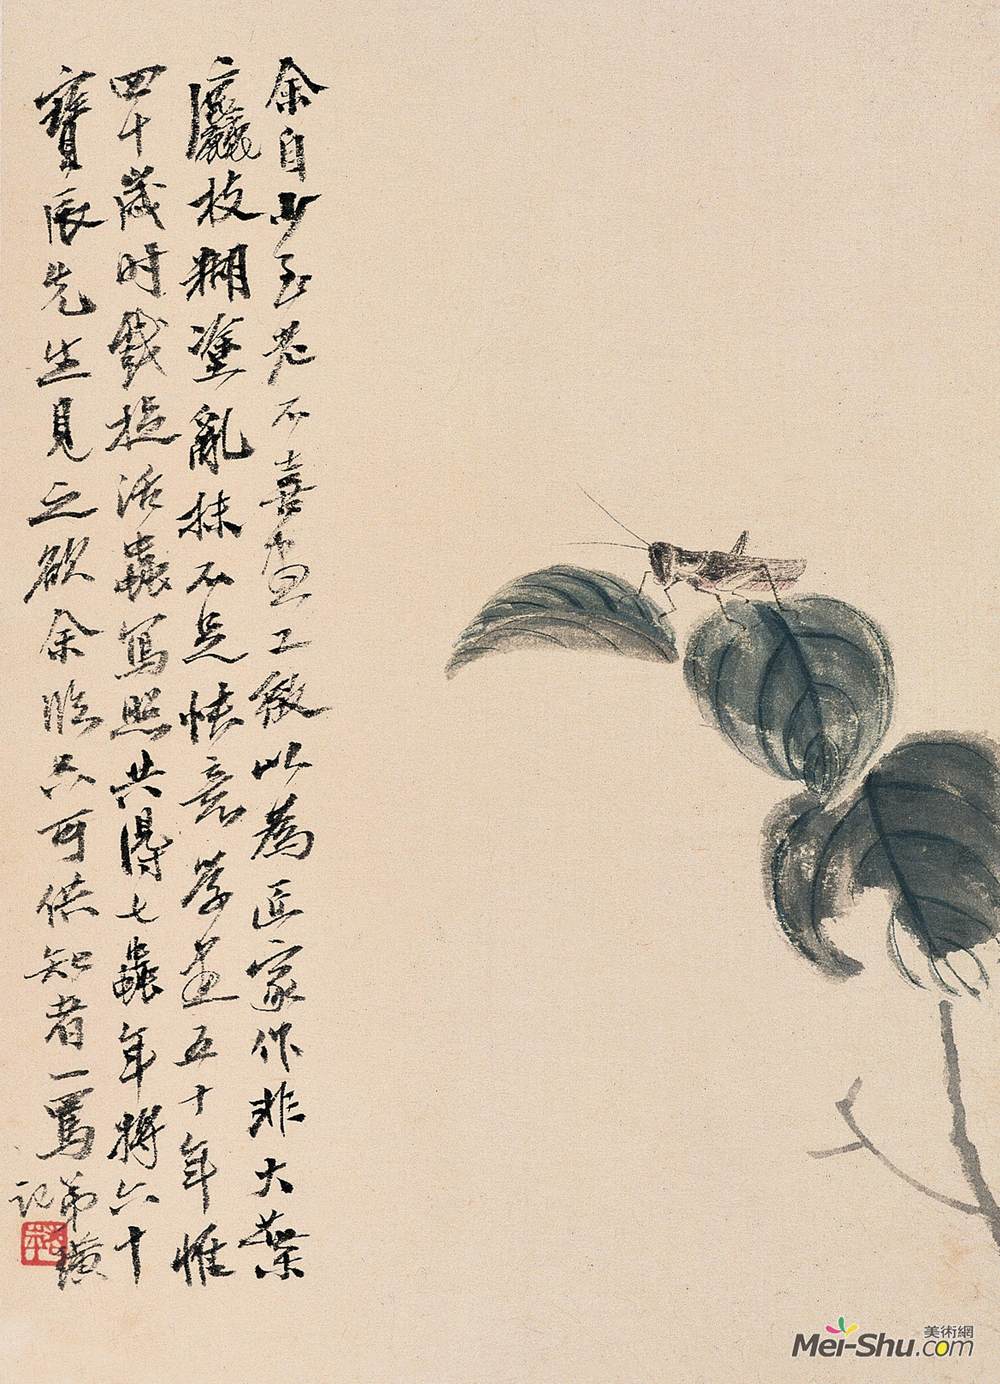 余自少至老不喜畫工緻以為匠家作非大葉
麤枝糊塗亂抹不足怯意學畫五十年惟
四十歲時戲捉活蟲寫照共得七蟲年將六十
寶辰先生見之欲余臨只可供知者一罵弟璜
記
美術網
Mei-Shu.com